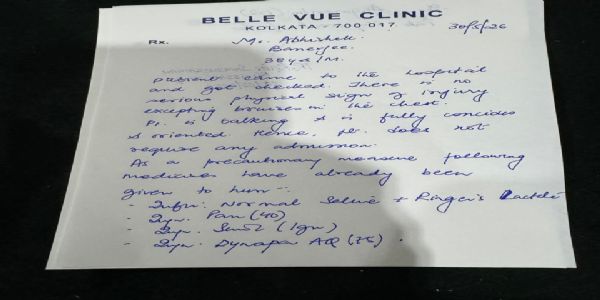 BELLE VUE CLINIC
KOLKATA - 700 017
30/5/26
Rx. Mr. Abhishek
Banerjee.
38 yrs/M.
Patient came to the hospital
and got checked. There is no
serious physical sign of injury
excepting bruises in the chest.
Pt. is talking & is fully concious
& oriented. Hence, pt. does not
require any admission.
As a precautionary measure following
medicines have already been
given to him -
- Infu: Normal Saline + Ringer's Lactate
- Inj. Pan (40)
- Inj. (1gm)
- Inj. Dynapar AQ (75).